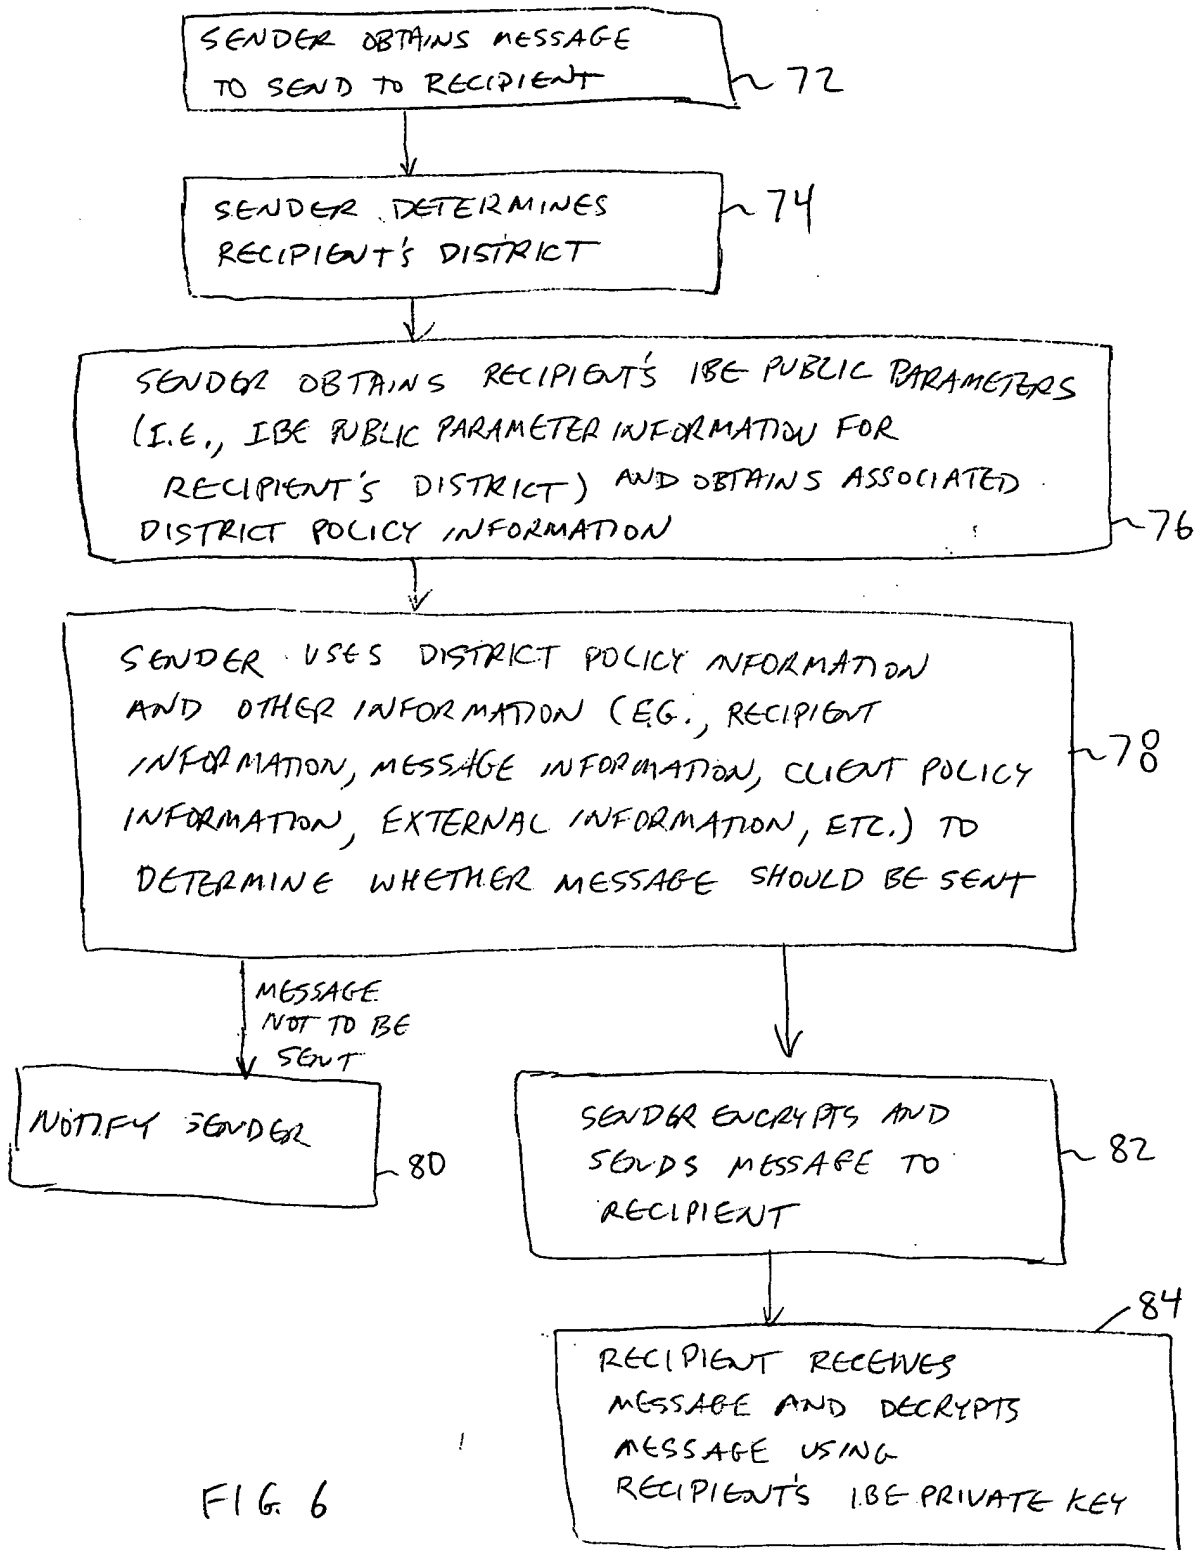 SENDER OBTAINS MESSAGE
TO SEND TO RECIPIENT
72
SENDER DETERMINES
RECIPIENT'S DISTRICT
74
SENDER OBTAINS RECIPIENT'S IBE PUBLIC PARAMETERS
(I.E., IBE PUBLIC PARAMETER INFORMATION FOR
RECIPIENT'S DISTRICT) AND OBTAINS ASSOCIATED
DISTRICT POLICY INFORMATION
76
SENDER USES DISTRICT POLICY INFORMATION
AND OTHER INFORMATION (E.G., RECIPIENT
INFORMATION, MESSAGE INFORMATION, CLIENT POLICY
INFORMATION, EXTERNAL INFORMATION, ETC.) TO
DETERMINE WHETHER MESSAGE SHOULD BE SENT
78
MESSAGE
NOT TO BE
SENT
NOTIFY SENDER
80
SENDER ENCRYPTS AND
SENDS MESSAGE TO
RECIPIENT
82
84
RECIPIENT RECEIVES
MESSAGE AND DECRYPTS
MESSAGE USING
RECIPIENT'S IBE PRIVATE KEY
FIG. 6